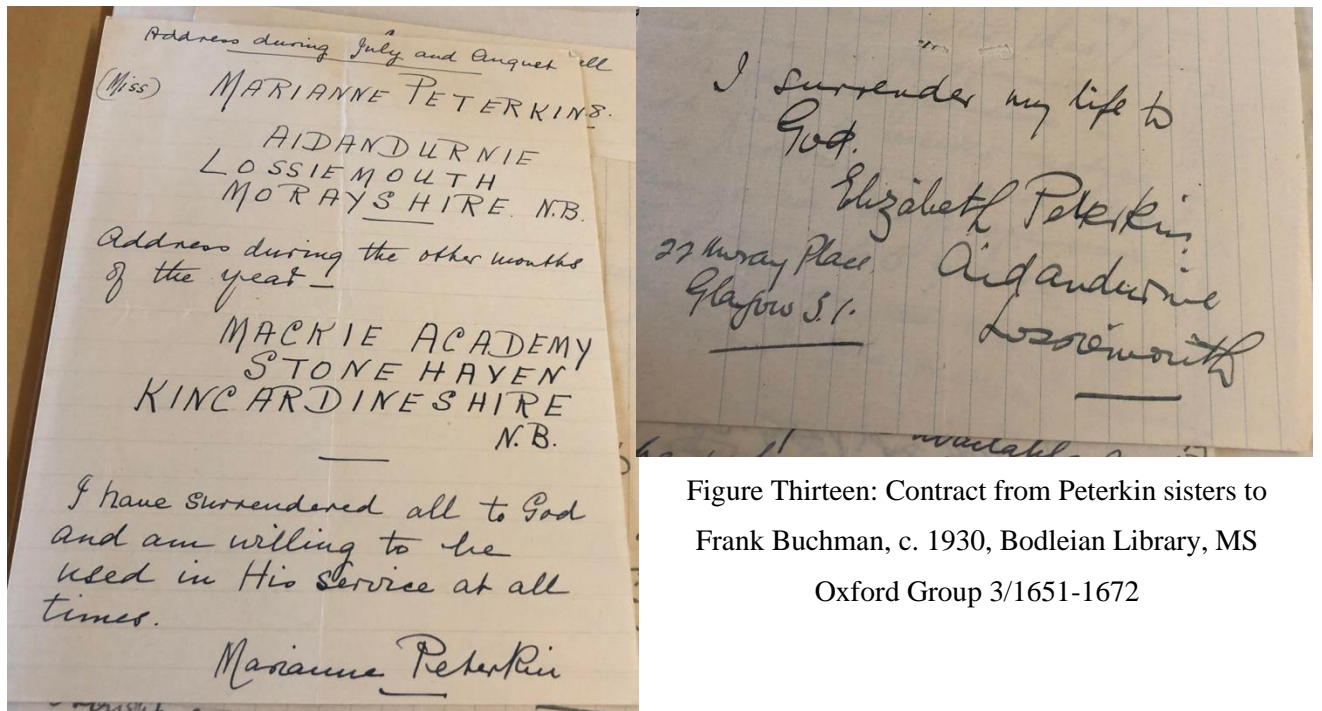 Address during July and August
(Miss) MARIANNE PETERKIN
AIDANDURNIE
LOSSIEMOUTH
MORAYSHIRE. N.B.
Address during the other months
of the year —
MACKIE ACADEMY
STONEHAVEN
KINCARDINESHIRE
N.B.
I have surrendered all to God
and am willing to be
used in His service at all
times.
Marianne Peterkin
I surrender my life to
God.
Elizabeth Peterkin
Aidandurnie
Lossiemouth
Place
Glasgow S.1.
available
Figure Thirteen: Contract from Peterkin sisters to
Frank Buchman, c. 1930, Bodleian Library, MS
Oxford Group 3/1651-1672